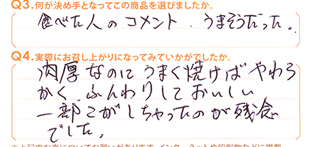 Q3.何が決め手となってこの商品を選びましたか。
食べた人のコメント．うまそうだった。
Q4.実際にお召し上がりになってみていかがでしたか。
肉厚なのにうまく焼けばやわら
かく、ふんわりしておいしい
一部こがしちゃったのが残念
でした。